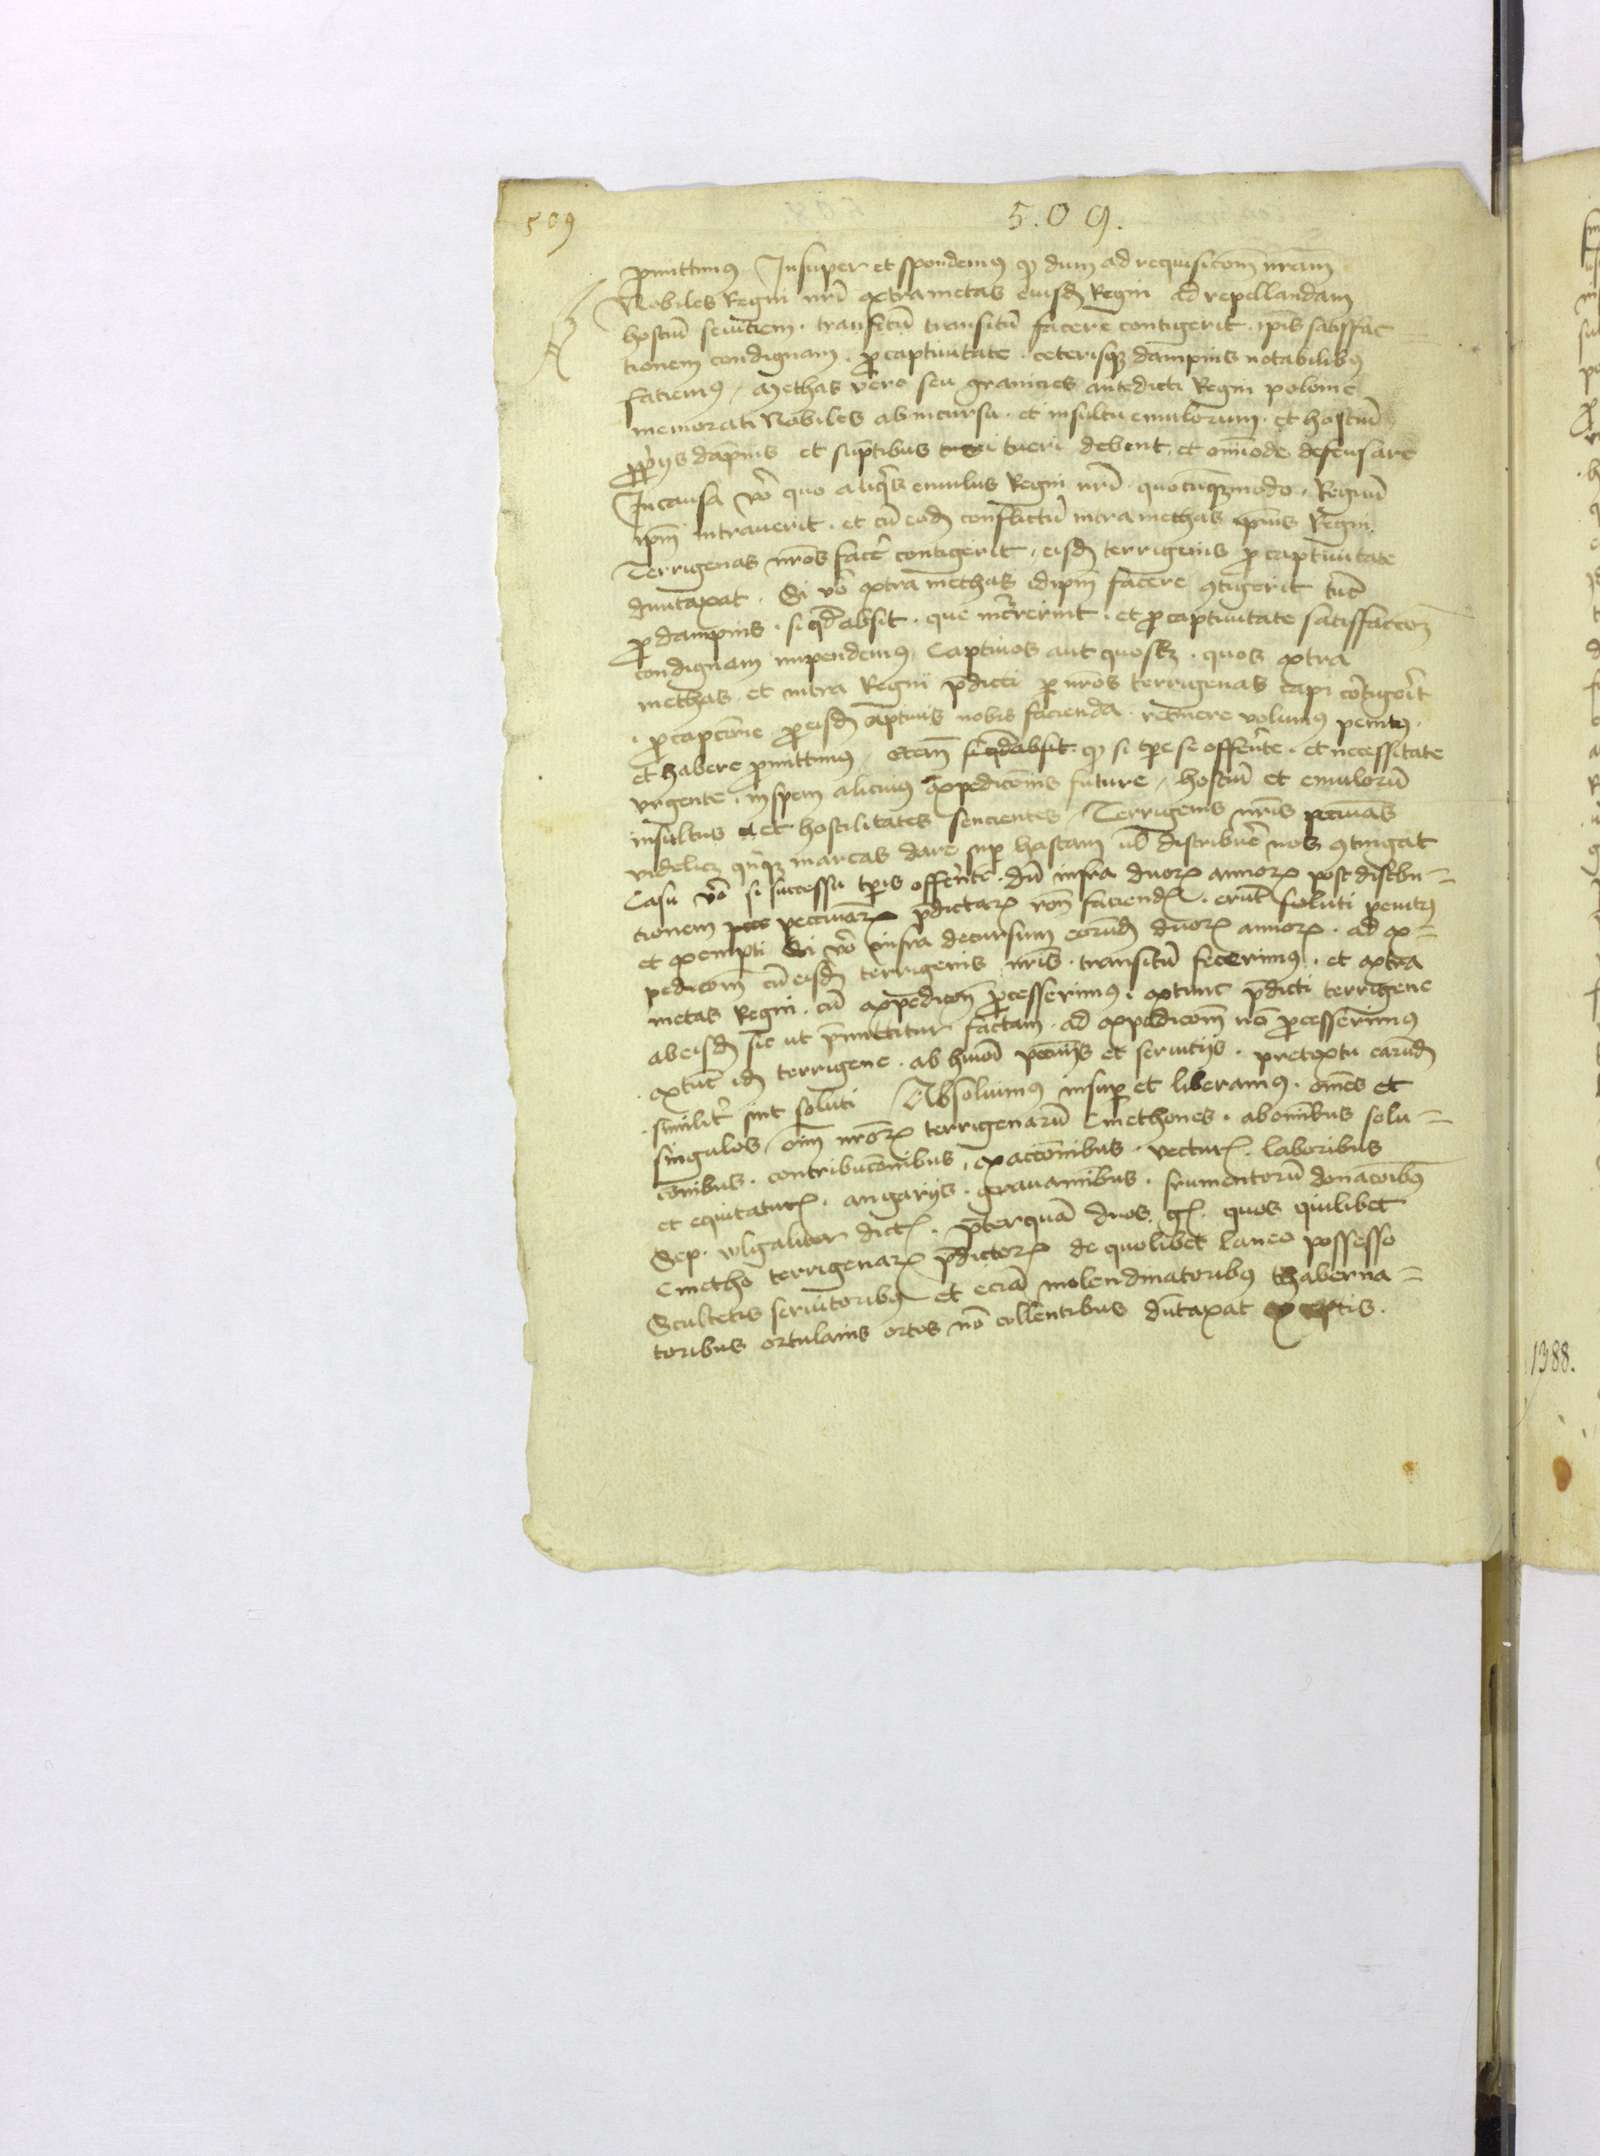 509
5.09.
p̄mittimꝰ Insuper et spondemꝰ ꝙ dum ad requisicom̄ nr̄am
Nobiles Regni nr̄i extra metas eiusd̄ Regni ad repellandam
hostiū seuiciem . transitū transitū facere contigerit . ip̄is satisfac
tionem condignam . ꝓ captiuitate . ceterisqꝫ dampnis notabilibꝰ
faciemꝰ / Methas vero seu granicies antedicti Regni polonie
memorati Nobiles ab incursu . et insultu emulorum . et hostiū
ꝓpriis dāpnis et sūptibus tueri debent . et om̄imode defensare
In causa v̄o quo aliq̄s emulus Regni nr̄i . quocūqꝫ modo . Regnū
ip̄m intrauerit . et cū eod̄ conflictū intra methas ip̄ius Regni
Terrigenas nr̄os fac̄e contigerit / eisd̄ terrigenis ꝓ captiuitate
duntaxat . Si v̄o extra methas idip̄m facere ꝯtigerit tūc
ꝓ dampnis . si qd̄ absit . que incr̄rerint . et ꝓ captiuitate satisfaccōꝫ
condignam impendemꝰ / Captiuos aut quoslꝫ . quos extra
methas . et intra Regni p̄dicti ꝑ nr̄os terrigenas capi cōtigerit
. ꝓ capcōne ꝓ eisd̄ captiuis nobis facienda . retinere volumꝰ penitꝰ .
et habere ꝓmittimꝰ / Etem̄ si qd̄ absit . ꝙ si tp̄e se offerēte . et necessitate
vrgente . in spem alicuius expedicōnis future / hostiū et emulorū
insultus et hostilitates sencientes / Terrigenis nr̄is pecunias
videlicꝫ q̄nqꝫ marcas dare suꝑ hastam ul̄ distribuē nos ꝯtingat
Casu v̄o si successu tp̄ris offerēte . dū infra duorꝝ annorꝝ post distbu=
tionem pecuniarꝝ p̄dictarꝝ rōn faciendꝝ . erūt soluti penitꝰ
et exempti Si v̄o infra decursum eorūd̄ duorꝝ annorꝝ . ad ex=
pedicom̄ cū eisd̄ terrigenis nr̄is . transitū fecerimꝰ . et extra
metas Regni . cū expedicōn ꝓcesserimꝰ . extunc p̄dicti terrigene
ab eisd̄ sic ut p̄mittitur factam . ad expedicom̄ nō ꝓcesserimꝰ
. extūc id̄ terrigene . ab hmōi pecuniis et seruitijs . pretextu earūd̄
. similit̄ sint soluti Absoluimus insuꝑ et liberamus . om̄es et
singulos / om̄i nr̄orꝝ terrigenarū Cmethones . ab om̄ibus solu=
cōnibus . contribucōnibus . exaccōnibus . vecturꝝ . laboribus
et equitaturꝝ . angarijs . grauamībus . frumentorū donacōibꝰ
Sep . vlgaliter dictꝝ . p̄terquā duos gꝝ . quos quilibet
Cmetho terrigenarꝝ p̄dictorꝝ de quolibet laneo possesso
Scultetis seruitoribꝰ et eciā molendinatoribꝰ thaberna=
toribus ortulanis ortos nō collentibus dūtaxat exceptis .
1388.